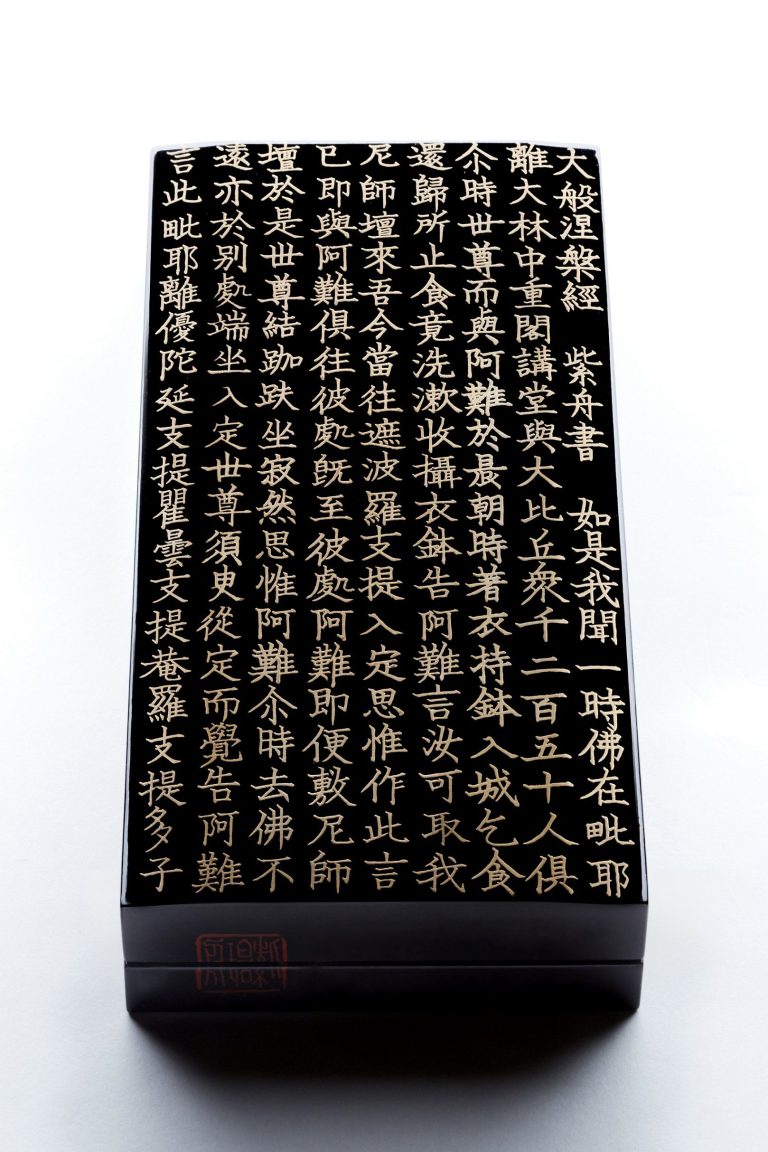 大般涅槃經　紫舟書　如是我聞一時佛在毗耶
離大林中重閣講堂與大比丘衆千二百五十人俱
尒時世尊而與阿難於晨朝時著衣持鉢入城乞食
還歸所止食竟洗漱收攝衣鉢告阿難言汝可取我
尼師壇來吾今當往遮波羅支提入定思惟作此言
已即與阿難俱往彼處既至彼處阿難即便敷尼師
壇於是世尊結跏趺坐寂然思惟阿難尒時去佛不
遠亦於別處端坐入定世尊須臾從定而覺告阿難
言此毗耶離優陀延支提瞿曇支提菴羅支提多子